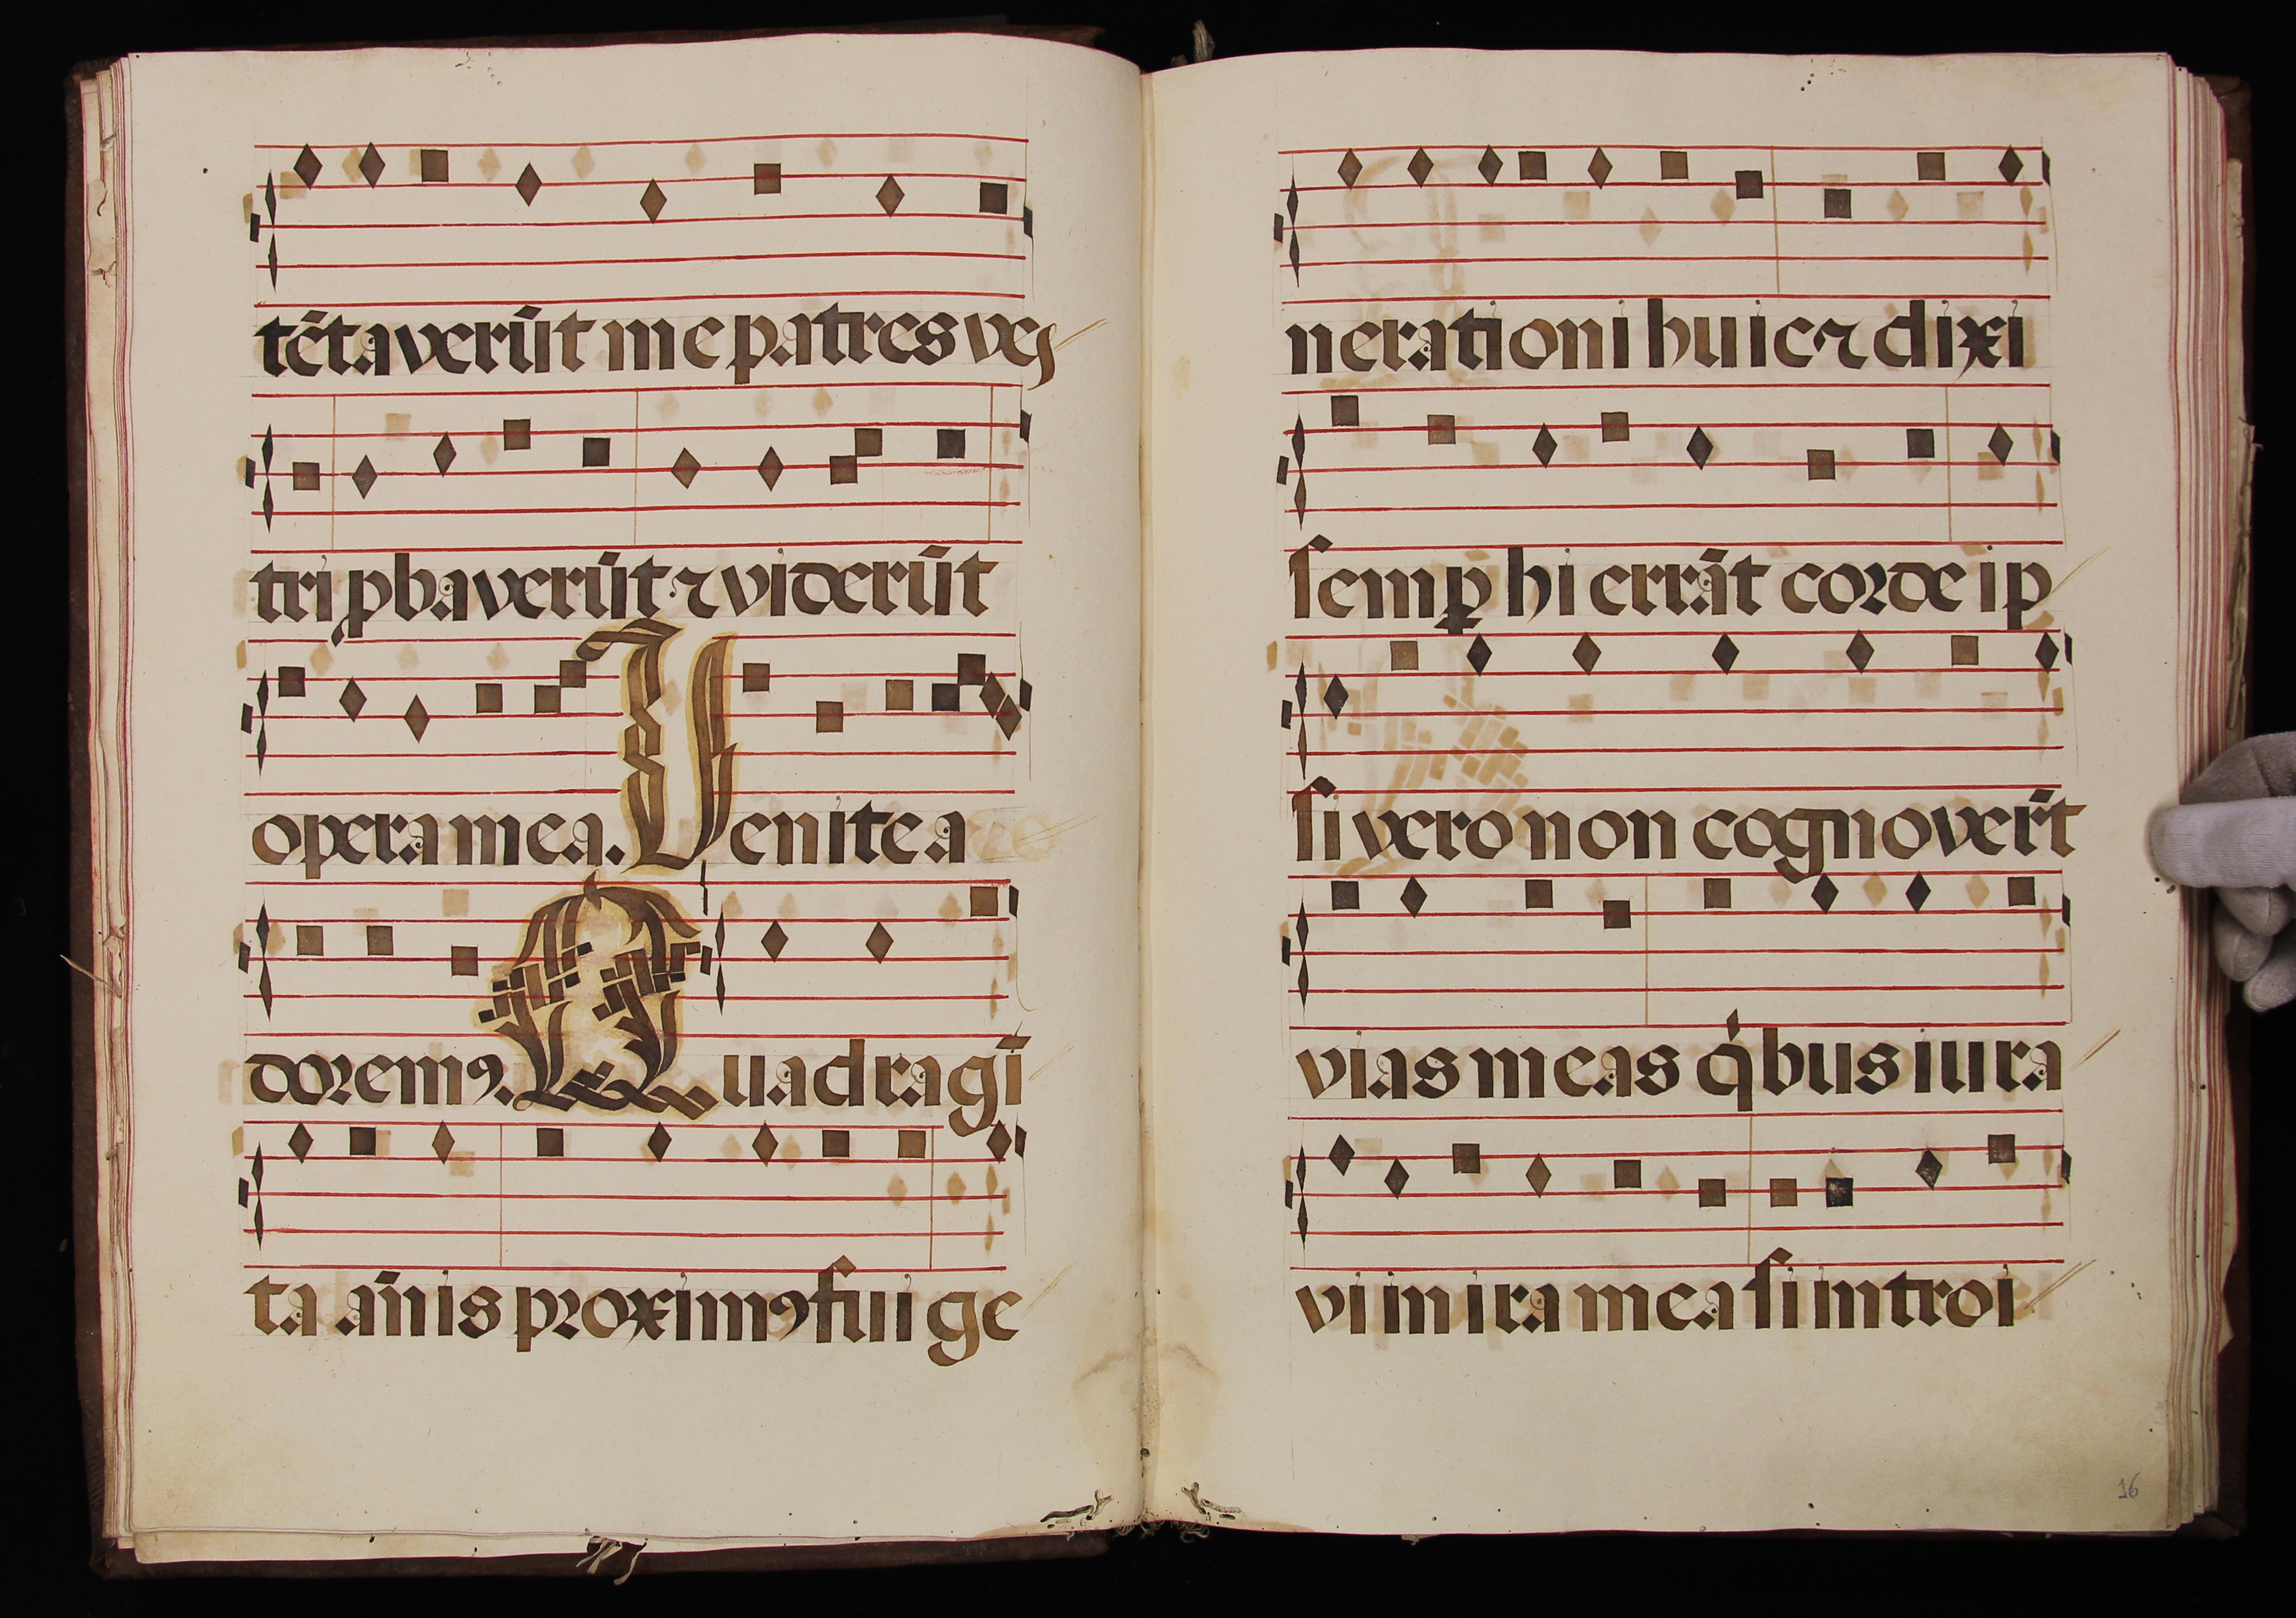 tētaverūt me patres ves
tri ꝓbaverūt ⁊ viderūt
opera mea. Venite a
doremꝰ. Quadragī
ta añis proximꝰ fui ge
nerationi huic ⁊ dixi
semꝑ hi errāt corde ip
si vero non cognovert̄
vias meas qͥbus iura
vi in ira mea si introi
16